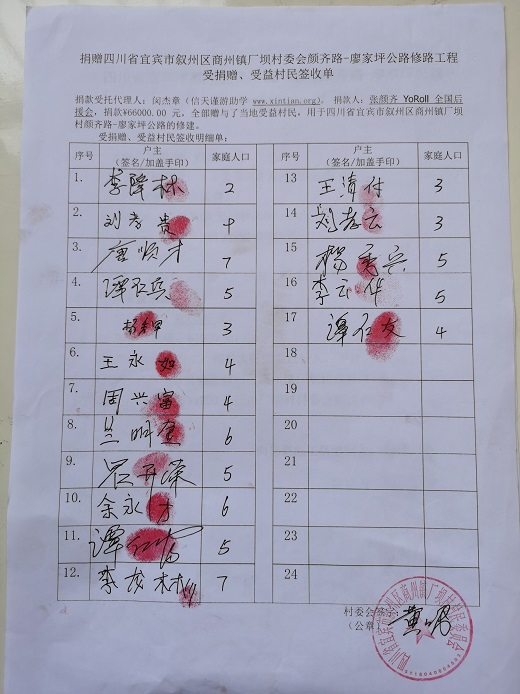 捐赠四川省宜宾市叙州区商州镇厂坝村委会颜齐路-廖家坪公路修路工程
受捐赠、受益村民签收单
捐款受托代理人：闵杰章（信天谨游助学 www.xintian.org)。捐款人：张颜齐 YoRoll 全国后
援会，捐款¥66000.00 元，全部赠与了当地受益村民，用于四川省宜宾市叙州区商州镇厂坝
村颜齐路-廖家坪公路的修建。
受捐赠、受益村民签收明细单：
序号 户主（签名/加盖手印） 家庭人口 序号 户主（签名/加盖手印） 家庭人口
1. 李 林 2 13 王 付 3
2. 刘孝贵 14 刘孝云 3
3. 唐顺才 7 15 杨 兴 5
4. 谭 兵 5 16 李云华 5
5. 3 17 谭仁友 4
6. 王永如 4 18
7. 周兴富 4 19
8. 兰明金 6 20
9. 吕开荣 5 21
10. 余永才 6 22
11. 谭 富 5 23
12. 李 林 7 24
村委会
（公章） 黄